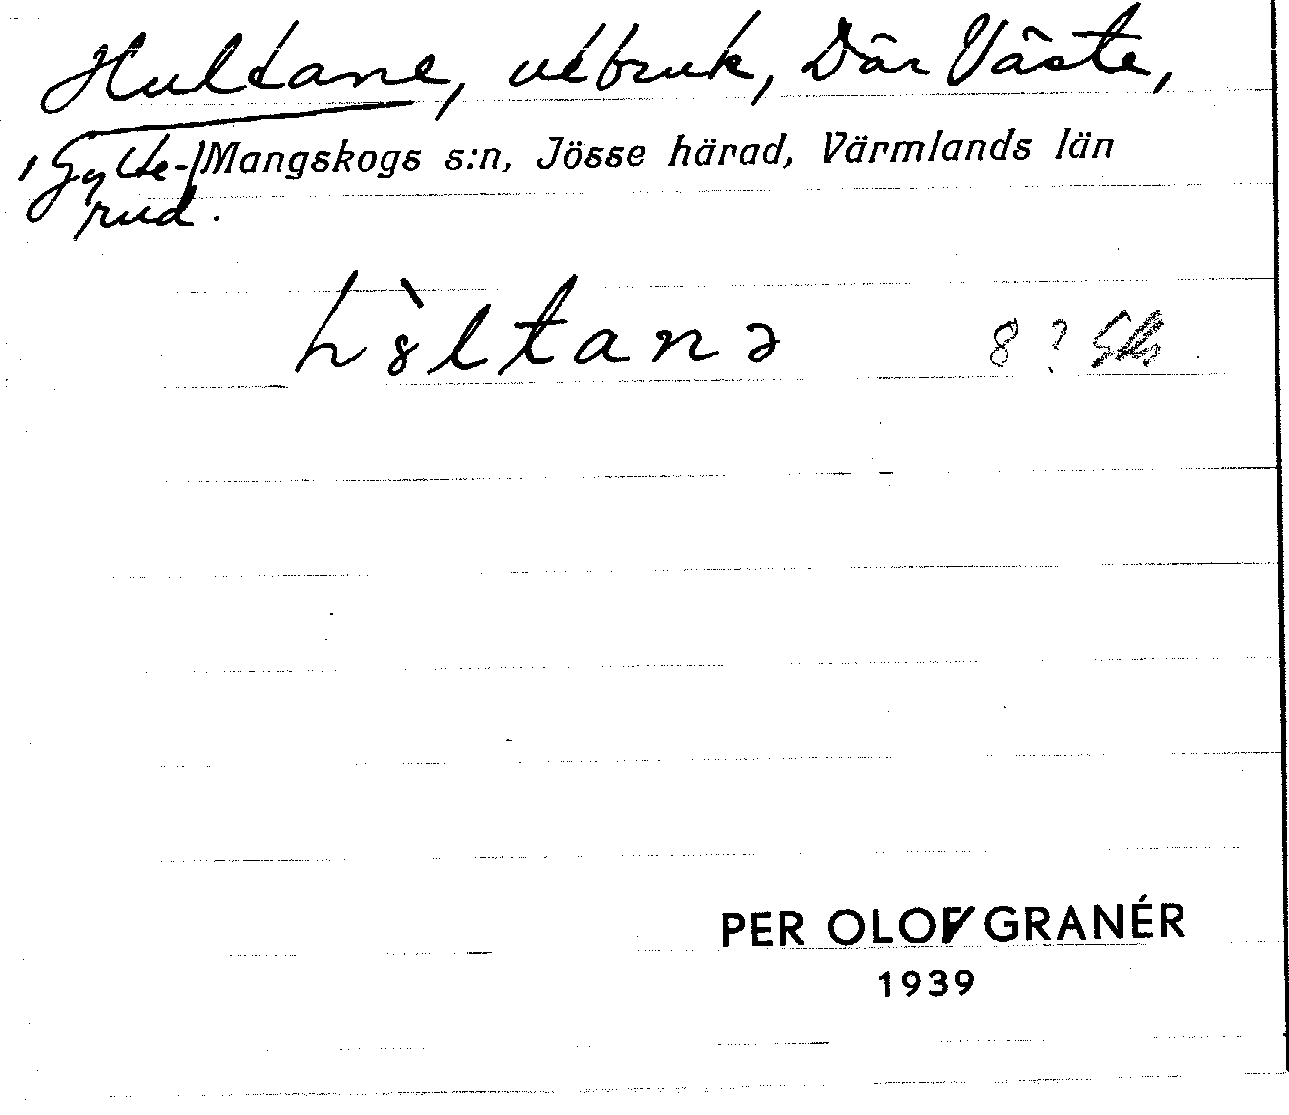 Hultane, utbruk, Där Väste,
, Gylte-/Mangskogs s:n, Jösse härad, Värmlands län
rud.
h8̀ltanə 8 ?
PER OLOV GRANÉR
1939